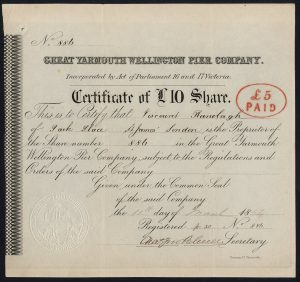 No. 886
GREAT YARMOUTH WELLINGTON PIER COMPANY.
Incorporated by Act of Parliament 16 and 17 Victoria.
Certificate of £10 Share.
£5
PAID
This is to Certify that Viscount Ranelagh
of Park Place St James London is the Proprietor of
the Share number 886 in the Great Yarmouth
Wellington Pier Company subject to the Regulations and
Orders of the said Company
Given under the Common Seal
of the said Company
the day of 18
Registered No. 886
Secretary